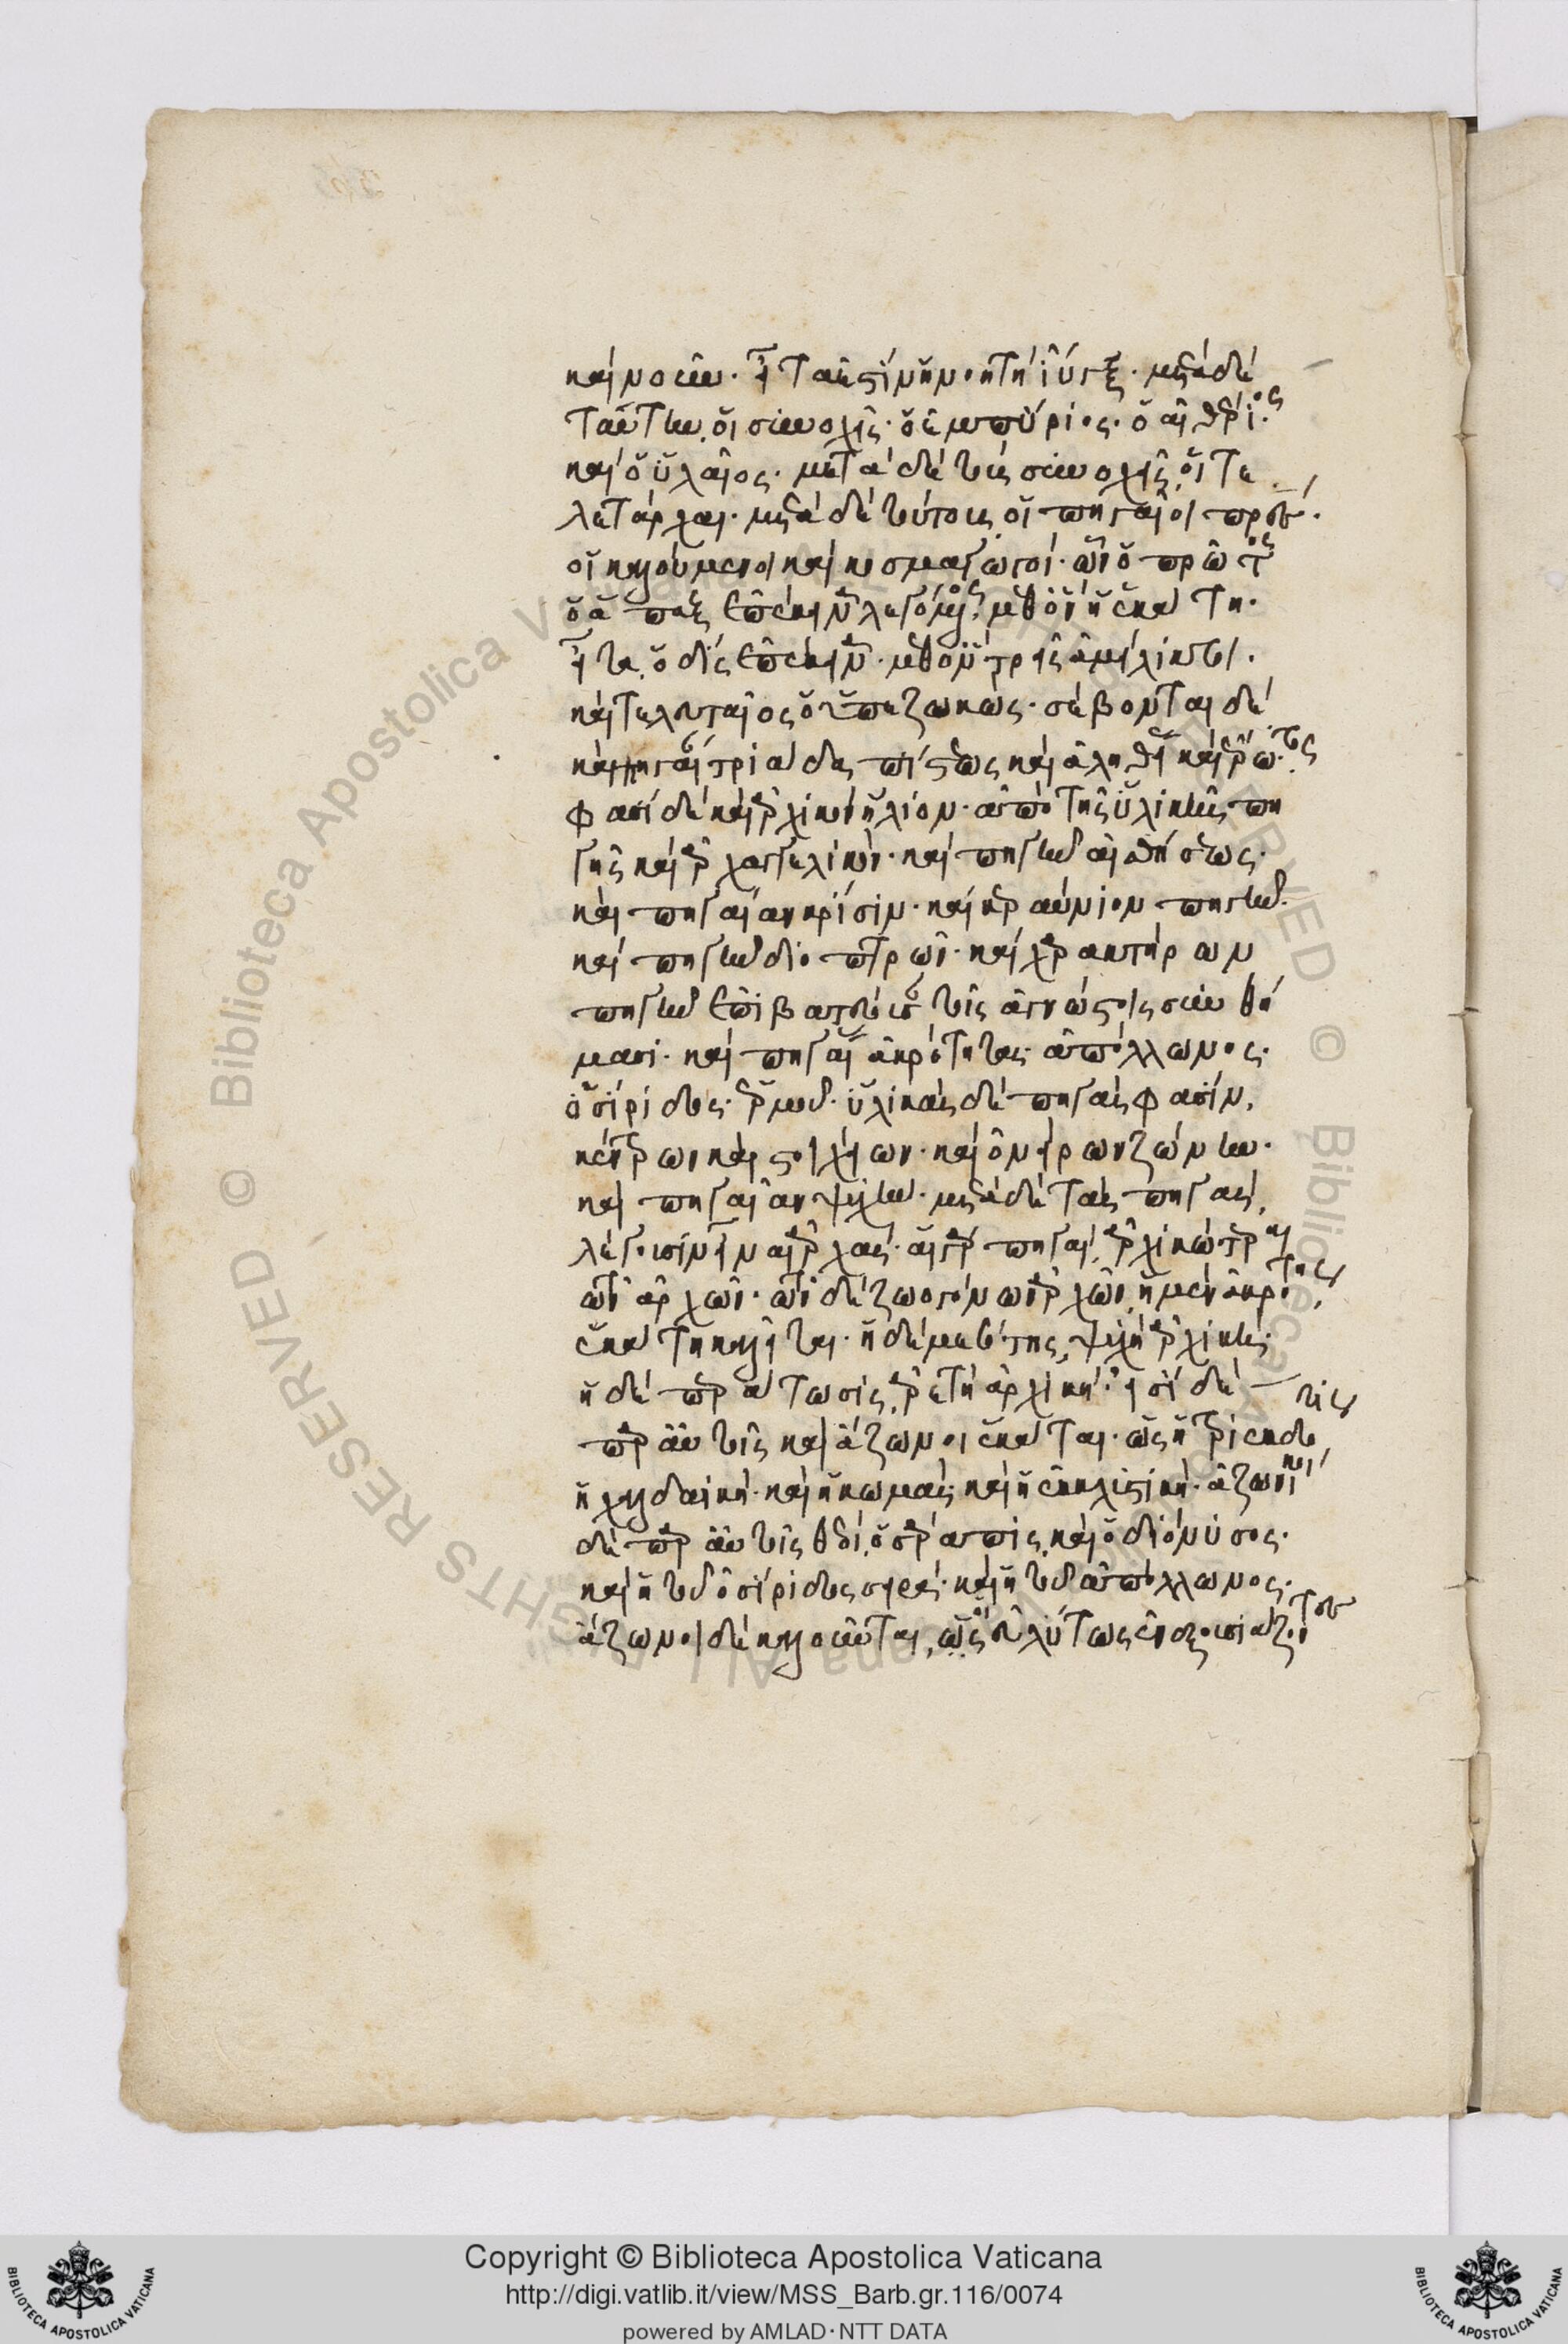 καὶ νοοῦν. εἶτά ἐστιν ἡ νοητὴ ἴυγξ. μετὰ δὲ
ταύτην, οἱ συνοχεῖς. ὁ ἐμπύριος. ὁ αἰθέριος.
καὶ ὁ ὑλαῖος. μετὰ δὲ τοὺς συνοχεῖς, οἱ τε
λετάρχαι. μετὰ δὲ τούτους οἱ πηγαῖοι πατέρες.
οἱ καλούμενοι καὶ κοσμαγωγοί. ὧν ὁ πρῶτος
ὁ ἅπαξ ἐπέκεινα λεγόμενος. μεθ' ὃν ἡ ἑκάτη.
εἶτα, ὁ δὶς ἐπέκεινα. μεθ' οὓς τρεῖς ἀμείλικτοι.
καὶ τελευταῖος ὁ ὑπεζωκώς. σέβονται δὲ
καὶ πηγαίαν τριάδα πίστεως καὶ ἀληθείας καὶ ἔρωτος
φασὶ δὲ καὶ ἀρχικὸν ἥλιον. ἀπὸ τῆς ὑλικῆς πη
γῆς καὶ ἀρχαγγελικόν. καὶ πηγὴν αἰσθήσεως.
καὶ πηγαίαν κρίσιν. καὶ κεραύνιον πηγήν.
καὶ πηγὴν διοπτρῶν. καὶ χαρακτήρων
πηγὴν ἐπιβατεύουσαν τοῖς ἀγνώστοις συνθή
μασι. καὶ πηγαίας ἀκρότητας. ἀπόλλωνος.
ὀσίριδος. ἑρμοῦ. ὑλικὰς δὲ πηγάς φασιν,
κέντρων καὶ στοιχείων. καὶ ὀνείρων ζώνην.
καὶ πηγαίαν ψυχήν. μετὰ δὲ τὰς πηγάς,
λέγουσιν εἶναι ἀρχάς. αἱ γὰρ πηγαί, ἀρχικώτεραι
τῶν ἀρχῶν. τῶν δὲ ζωογόνων ἀρχῶν, ἡ μὲν ἀκρότης,
ἑκάτη καλεῖται. ἡ δὲ μεσότης, ψυχὴ ἀρχική.
ἡ δὲ περάτωσις, ἀρετὴ ἀρχική. εἰσὶ δὲ
παρ' αὐτοῖς καὶ ἄζωνοι ἑκάται. ὡς ἡ τριεκδότις,
ἡ χαλδαϊκή. καὶ ἡ κωμάς. καὶ ἡ ἐκκλύστικη. ἀζωνικοὶ
δὲ παρ' αὐτοῖς θεοί, ὁ σάραπις, καὶ ὁ διόνυσος.
καὶ ἡ τοῦ ὀσίριδος σειρά. καὶ ἡ τοῦ ἀπόλλωνος.
ἄζωνοι δὲ καλοῦνται, ὡς εὐλύτως ἐνεξουσιάζοντες